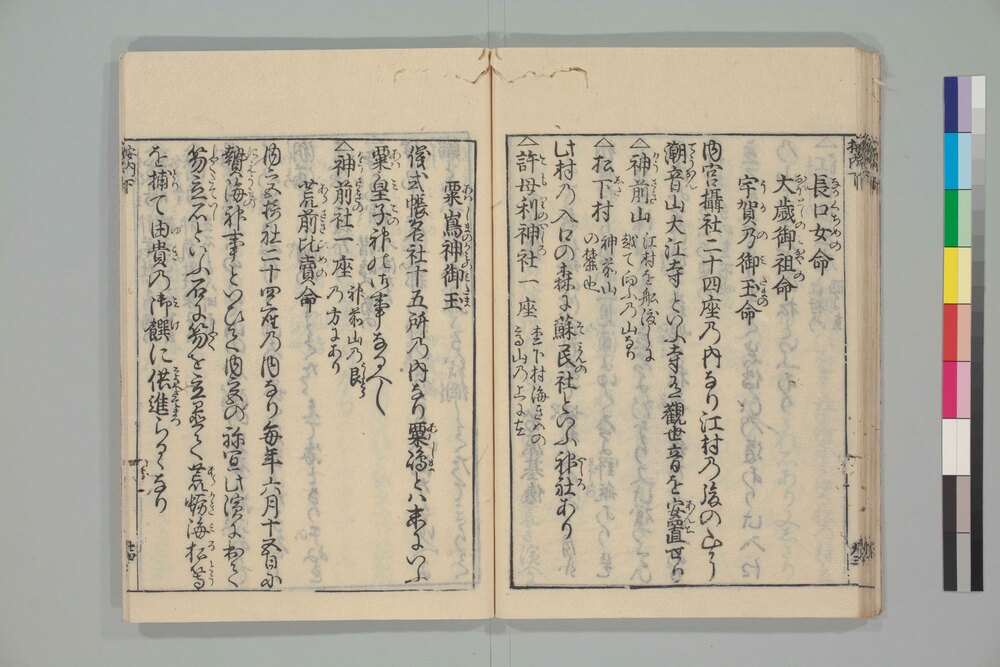 長口女命
大歳御祖命
宇賀乃御玉命
内宮攝社二十四座乃内なり江村乃後の山なり
潮音山大江寺といふ寺に觀世音を安置せり
神前山 江村を船渡しに
越て向ふ乃山なり
松下村 神前山
の麓也
此村乃入口の森に蘇民社といふ神社あり
許母利神社一座 松下村海きはの
高山の上に在
粟嶌神御玉
儀式帳名社十五所乃内なり粟嶋とは末にいふ
粟皇子神の御事なるへし
神前社一座 神前山の艮
乃方にあり
荒前比賣命
内宮攝社二十四座乃内なり毎年六月十五日に
贄海神事といひて内宮の祢宜此濱において
笏立石といふ石に笏を立置て荒蛎海松等
を捕て由貴乃御饌に供進らるゝなり